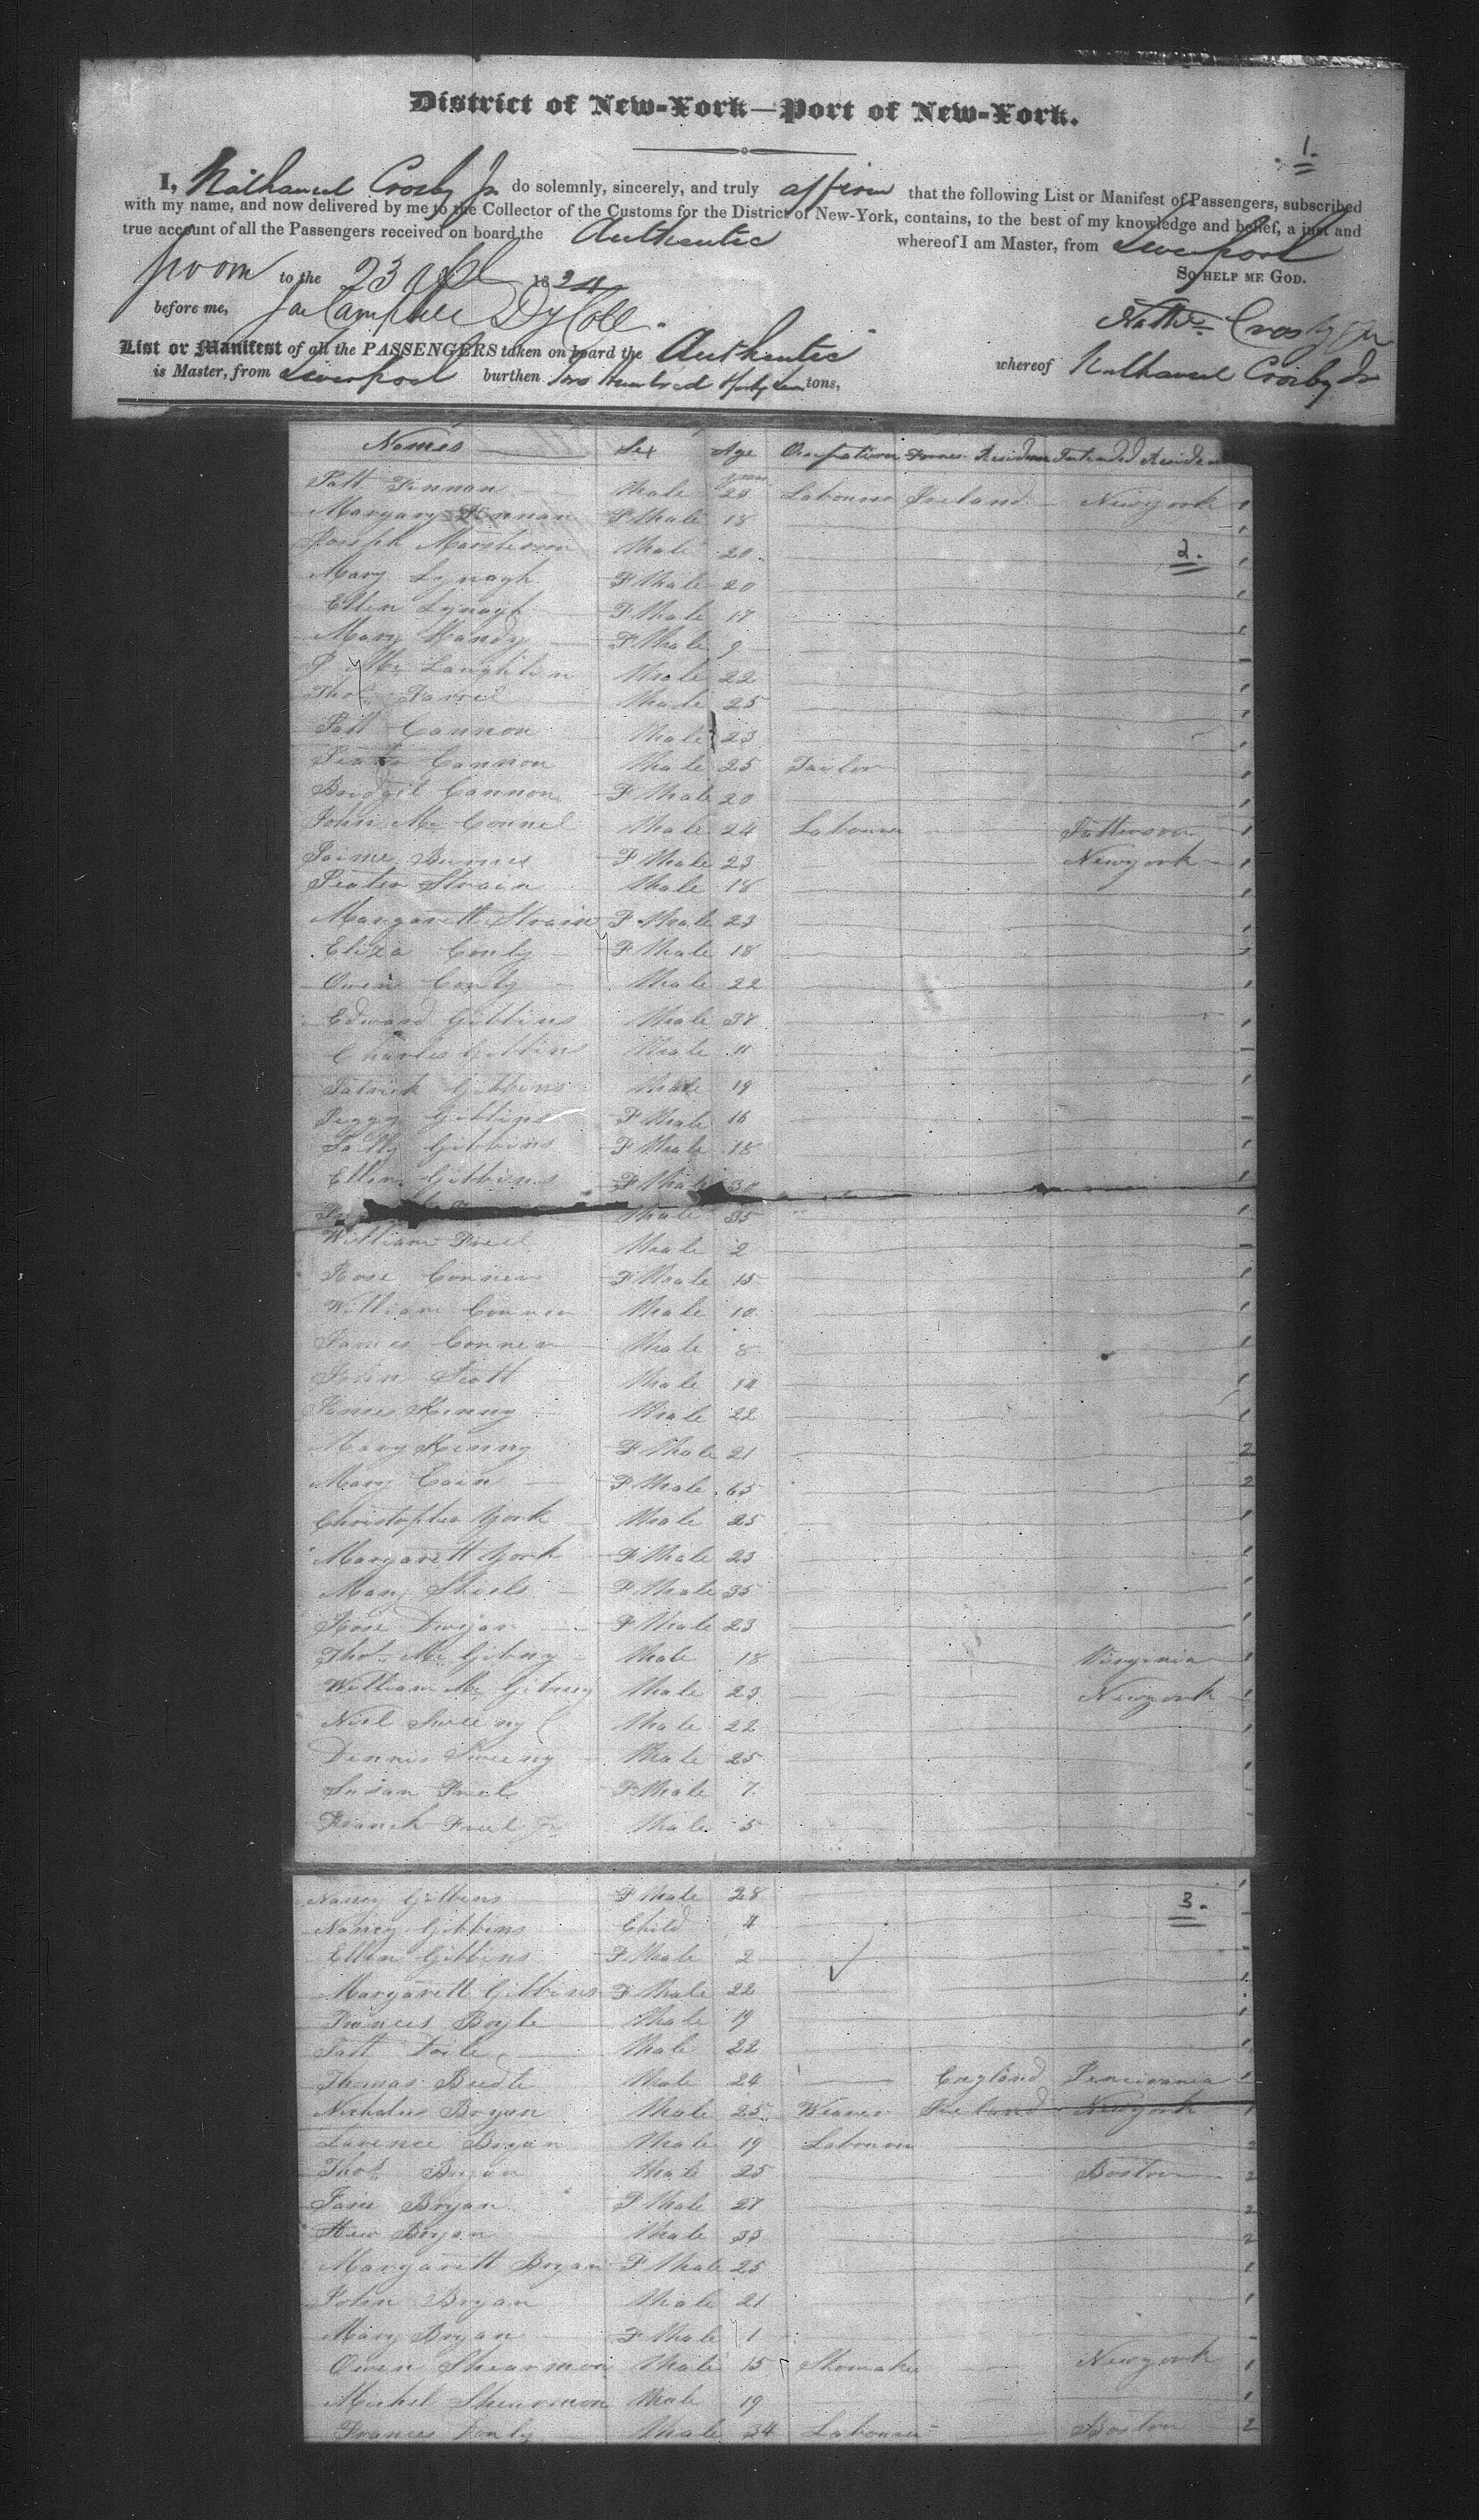 District of New-York—Port of New-York.
1.
I, Nathaniel Crosby Jr. do solemnly, sincerely, and truly affirm that the following List or Manifest of Passengers, subscribed
with my name, and now delivered by me to the Collector of the Customs for the District of New-York, contains, to the best of my knowledge and belief, a just and
true account of all the Passengers received on board the Authentic whereof I am Master, from Liverpool
to the 23 1824 So HELP ME GOD.
before me, Campbell Dy Coll. Crosby Jr
List or Manifest of all the PASSENGERS taken on board the Authentic whereof Nathaniel Crosby Jr
is Master, from Liverpool burthen Two Hundred tons,
Names Sex Age Occupation Former Residence Intended Residence
Patt Finnan Male 23 Labourer Ireland Newyork 1
Margary Finnan F Male 18 1
Joseph Masterson Male 20 1
2.
Mary Lynagh F Male 20 1
Ellin Lynagh F Male 17 1
Mary Handy F Male 9 –
P Mc Laughlin Male 22 1
Thos Farrel Male 25 1
Patt Cannon Male 23 1
Cannon Male 25 Tailor 1
Bridget Cannon F Male 20 1
John Mc Connel Male 24 Labourer Patterson 1
Burnes F Male 23 Newyork 1
Peater Strain Male 18 1
Margarett Strain F Male 23 1
Eliza Conly F Male 18 1
Owen Conly Male 22 1
Edward Gibbins Male 37 1
Charles Gibbins Male 11 –
Patrick Gibbins Male 19 1
Peggy Gibbins F Male 16 –
Sally Gibbins F Male 18 1
Ellen Gibbins F Male 30 1
Male 35 1
William Freel Male 2 –
Rose Conner F Male 15 1
William Conner Male 10 1
James Conner Male 8 1
John Scott Male 14 1
James Kenny Male 22 1
Mary Kenny F Male 21 2
Mary Cain F Male 65 2
Christopher York Male 25 1
Margarett York F Male 23 1
Mary Shiels F Male 35 1
Rose F Male 23 1
Thos Mc Gibny Male 18 Virginia 1
William Mc Gibney Male 23 Newyork 1
Niel Sweeny Male 22 1
Dennis Sweeny Male 25 1
Susan Freel F Male 7 –
Freel Jr Male 5 –
Nancy Gibbins F Male 28 1
3.
Nancy Gibbins Child 4 –
Ellen Gibbins F Male 2 –
Margarett Gibbins F Male 22 1
Frances Boyle Male 19 1
Patt Male 22 1
Thomas Male 24 England Pencivania 1
Nicholas Bryan Male 25 Weaver Ireland Newyork 1
Larence Bryan Male 19 Labourer 2
Thos Bryan Male 25 Boston 2
Jain Bryan F Male 27 2
Hew Bryan Male 33 2
Margarett Bryan F Male 25 1
John Bryan Male 21 1
Mary Bryan F Male 1 –
Owen Shearmon Male 15 Shomaker Newyork 1
Michel Shearmon Male 19 1
Frances Male 34 Labourer Boston 2